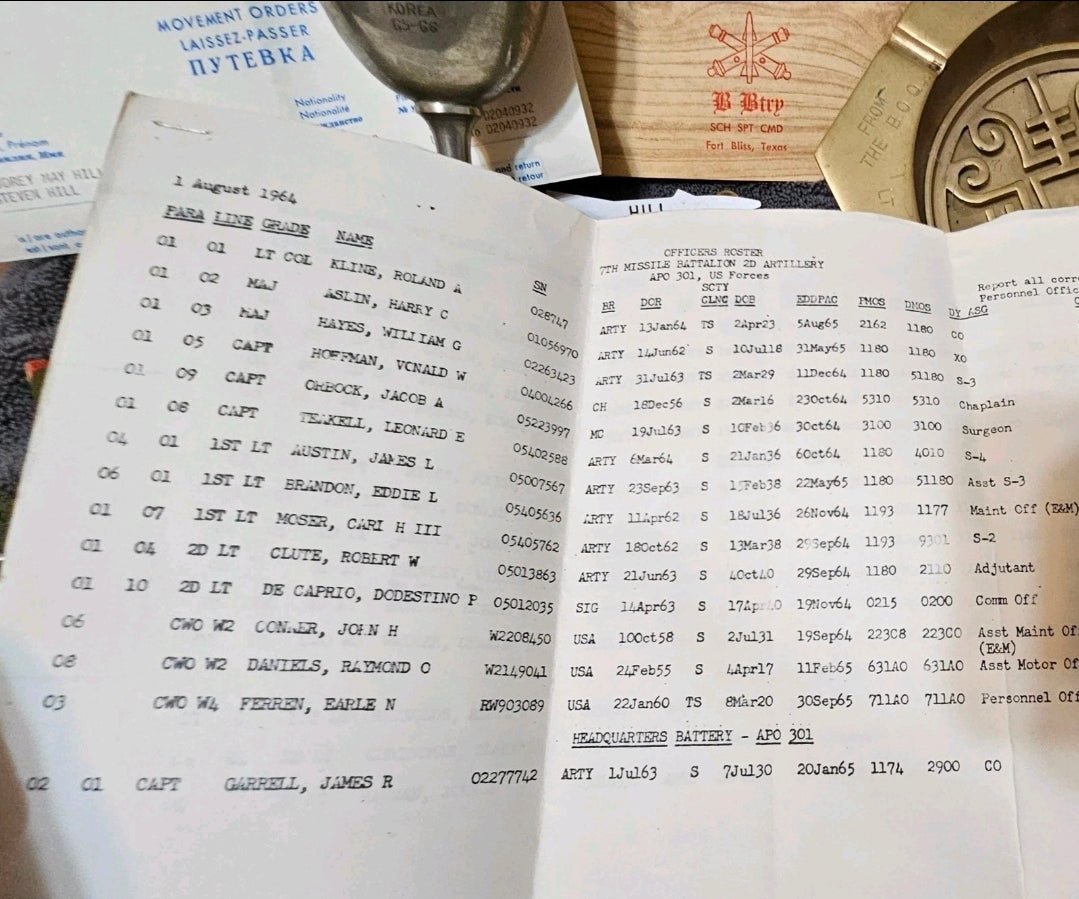 MOVEMENT ORDERS
LAISSEZ-PASSER
ПУТЕВКА
Nationality
Nationalité
Prénom
STEVEN HILL
02040932
02040932
and return
retour
KOREA
65-66
B Btry
SCH SPT CMD
Fort Bliss, Texas
FROM
THE B.O.Q.
HILL
1 August 1964
OFFICERS ROSTER
7TH MISSILE BATTALION 2D ARTILLERY
APO 301, US Forces
Report all
Personnel
PARA LINE GRADE NAME SN BR DOR SCTY CLNG DOB EDDPAC PMOS DMOS DY ASG
01 01 LT COL KLINE, ROLAND A 028747 ARTY 13Jan64 TS 2Apr23 5Aug65 2162 1180 CO
01 02 MAJ ASLIN, HARRY C 01056970 ARTY 14Jun62 S 10Jul18 31May65 1180 1180 XO
01 03 MAJ HAYES, WILLIAM G 02263423 ARTY 31Jul63 TS 2Mar29 11Dec64 1180 51180 S-3
01 05 CAPT HOFFMAN, VONALD W 04004266 CH 18Dec56 S 2Mar16 23Oct64 5310 5310 Chaplain
01 09 CAPT ORBOCK, JACOB A 05223997 MC 19Jul63 S 10Feb36 3Oct64 3100 3100 Surgeon
01 08 CAPT TEAKELL, LEONARD E 05402588 ARTY 6Mar64 S 21Jan36 6Oct64 1180 4010 S-4
04 01 1ST LT AUSTIN, JAMES L 05007567 ARTY 23Sep63 S Feb38 22May65 1180 51180 Asst S-3
06 01 1ST LT BRANDON, EDDIE L 05405636 ARTY 11Apr62 S 18Jul36 26Nov64 1193 1177 Maint Off (E&M)
01 07 1ST LT MOSER, CARL H III 05405762 ARTY 18Oct62 S 13Mar38 29Sep64 1193 9301 S-2
01 04 2D LT CLUTE, ROBERT W 05013863 ARTY 21Jun63 S 4Oct40 29Sep64 1180 2110 Adjutant
01 10 2D LT DE CAPRIO, DODESTINO P 05012035 SIG 14Apr63 S 17Apr40 19Nov64 0215 0200 Comm Off
06 CWO W2 CONNER, JOHN H W2208450 USA 10Oct58 S 2Jul31 19Sep64 223C8 223C0 Asst Maint Of
(E&M)
08 CWO W2 DANIELS, RAYMOND O W2149041 USA 24Feb55 S 4Apr17 11Feb65 631A0 631A0 Asst Motor Of
03 CWO W4 FERREN, EARLE N RW903089 USA 22Jan60 TS 8Mar20 30Sep65 711A0 711A0 Personnel Off
HEADQUARTERS BATTERY - APO 301
02 01 CAPT GARRELL, JAMES R 02277742 ARTY 1Jul63 S 7Jul30 20Jan65 1174 2900 CO